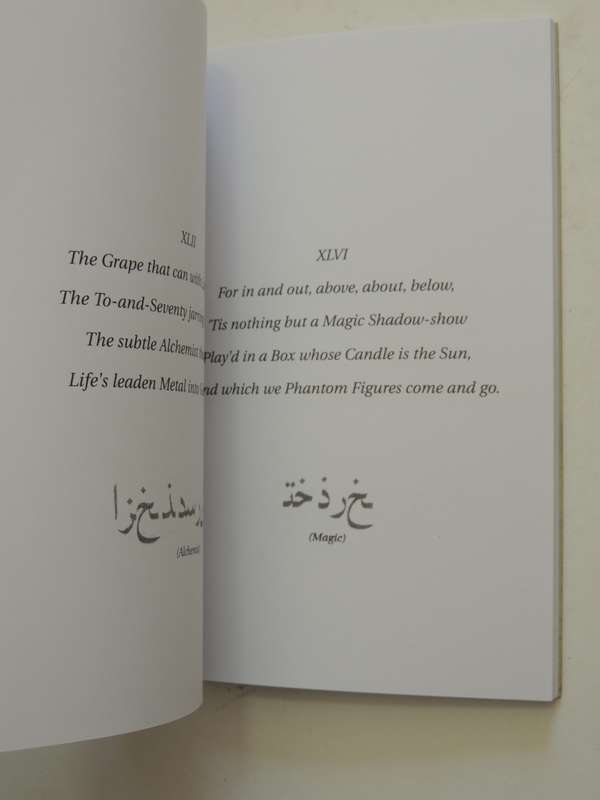 XLII
The Grape that can
The To-and-Seventy
The subtle Alchemist
Life's leaden Metal into
XLVI
For in and out, above, about, below,
'Tis nothing but a Magic Shadow-show
Play'd in a Box whose Candle is the Sun,
which we Phantom Figures come and go.
(Magic)